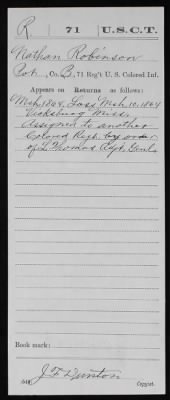 R. 71 U.S.C.T.
Nathan Robinson
Pvt., Co. B, 71 Reg't U. S. Colored Inf.
Appears on Returns as follows:
Mch. 1864, Loss Mch. 10, 1864
Vicksburg Miss.
Assigned to another
Colored Regt. by order
of L Thomas Adjt. Genl.
Book mark:
J F Dunton
Copyist.